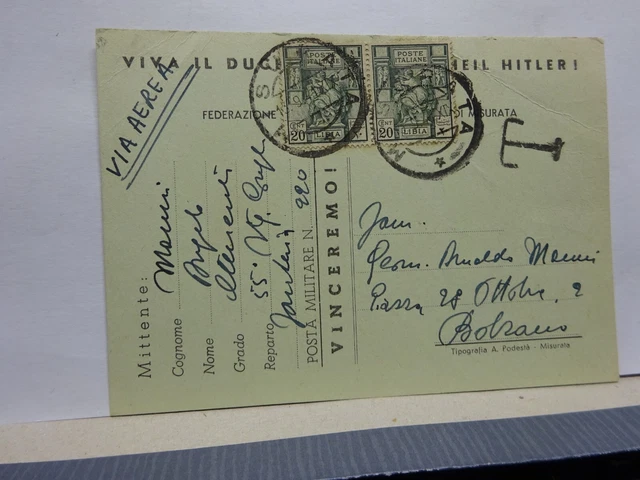 VIVA IL DUCE HEIL HITLER!
POSTE ITALIANE
CENT 20 LIBIA
POSTE ITALIANE
CENT 20 LIBIA
FEDERAZIONE DI MISURATA
VIA AEREA
T
Mittente:
Cognome Manni
Nome
Grado
Reparto 55°
POSTA MILITARE N. 220
VINCEREMO!
Geom. Arnaldo Manni
Piazza 28 Ottobre, 2
Bolzano
Tipografia A. Podestà - Misurata